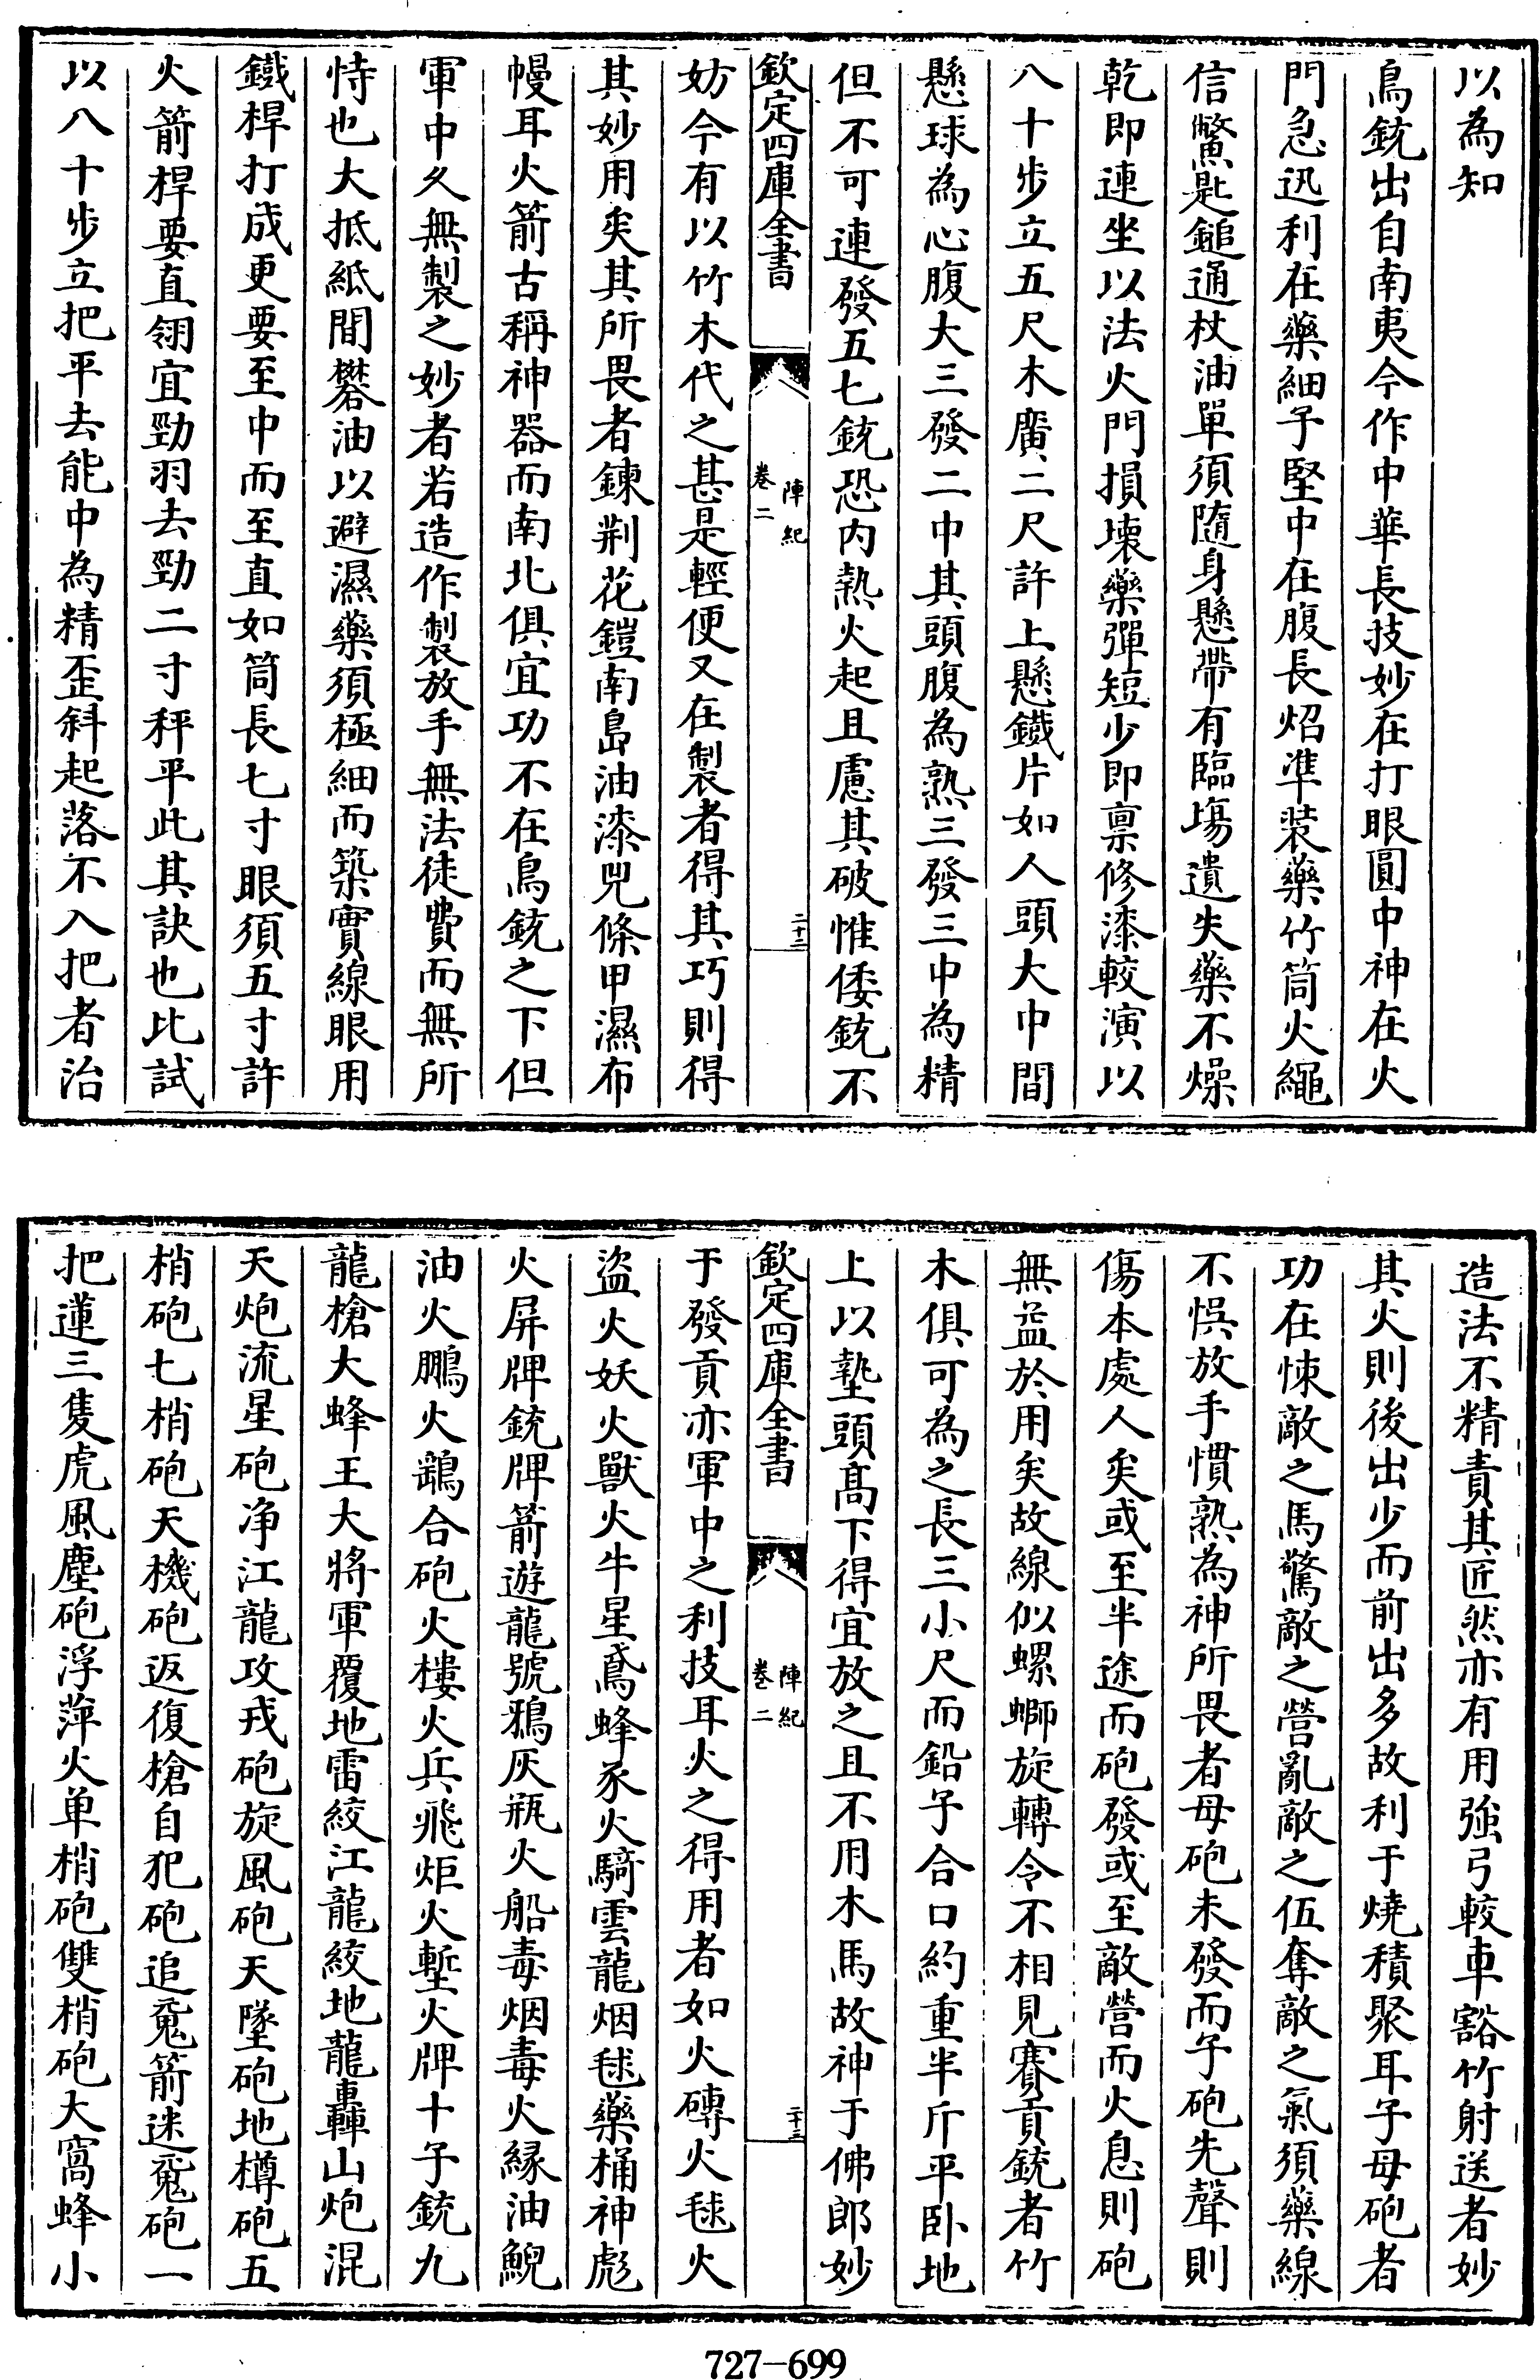 以為知
鳥銃出自南夷今作中華長技妙在打眼圓中神在火
門急迅利在藥細子堅中在腹長炤準裝藥竹筒火繩
信鱉匙鎚通杖油單須隨身懸帶有臨場遺失藥不燥
乾即連坐以法火門損壞藥彈短少即禀修漆較演以
八十步立五尺木廣二尺許上懸鐵片如人頭大中間
懸球為心腹大三發二中其頭腹為熟三發三中為精
但不可連發五七銃恐内熱火起且慮其破惟倭銃不
欽定四庫全書
陣紀
卷二
二十二
妨今有以竹木代之甚是輕便又在製者得其巧則得
其妙用矣其所畏者鍊荆花鎧南島油漆兕條甲濕布
幔耳火箭古稱神器而南北俱宜功不在鳥銃之下但
軍中久無製之妙者若造作製放手無法徒費而無所
恃也大抵紙間礬油以避濕藥須極細而築實線眼用
鐵桿打成更要至中而至直如筒長七寸眼須五寸許
火箭桿要直翎宜勁羽去勁二寸秤平此其訣也比試
以八十步立把平去能中為精歪斜起落不入把者治
造法不精責其匠然亦有用強弓較車豁竹射送者妙
其火則後出少而前出多故利于燒積聚耳子母砲者
功在悚敵之馬驚敵之營亂敵之伍奪敵之氣須藥線
不悞放手慣熟為神所畏者母砲未發而子砲先聲則
傷本處人矣或至半途而砲發或至敵營而火息則砲
無益於用矣故線似螺螄旋轉令不相見賽貢銃者竹
木俱可為之長三小尺而鉛子合口約重半斤平卧地
上以墊頭髙下得宜放之且不用木馬故神于佛郎妙
欽定四庫全書
陣紀
卷二
二十三
于發貢亦軍中之利技耳火之得用者如火磚火毬火
盜火妖火獸火牛星鳶蜂豕火騎雲龍烟毬藥桶神彪
火屏牌銃牌箭遊龍號鴉灰瓶火船毒烟毒火縁油鯢
油火鵬火鷂合砲火樓火兵飛炬火塹火牌十子銃九
龍槍大蜂王大將軍覆地雷絞江龍絞地龍轟山炮混
天炮流星砲净江龍攻戎砲旋風砲天墜砲地樽砲五
梢砲七梢砲天機砲返復槍自犯砲追䰟箭迷䰟砲一
把蓮三隻虎風塵砲浮萍火单梢砲雙梢砲大窩蜂小
727—699